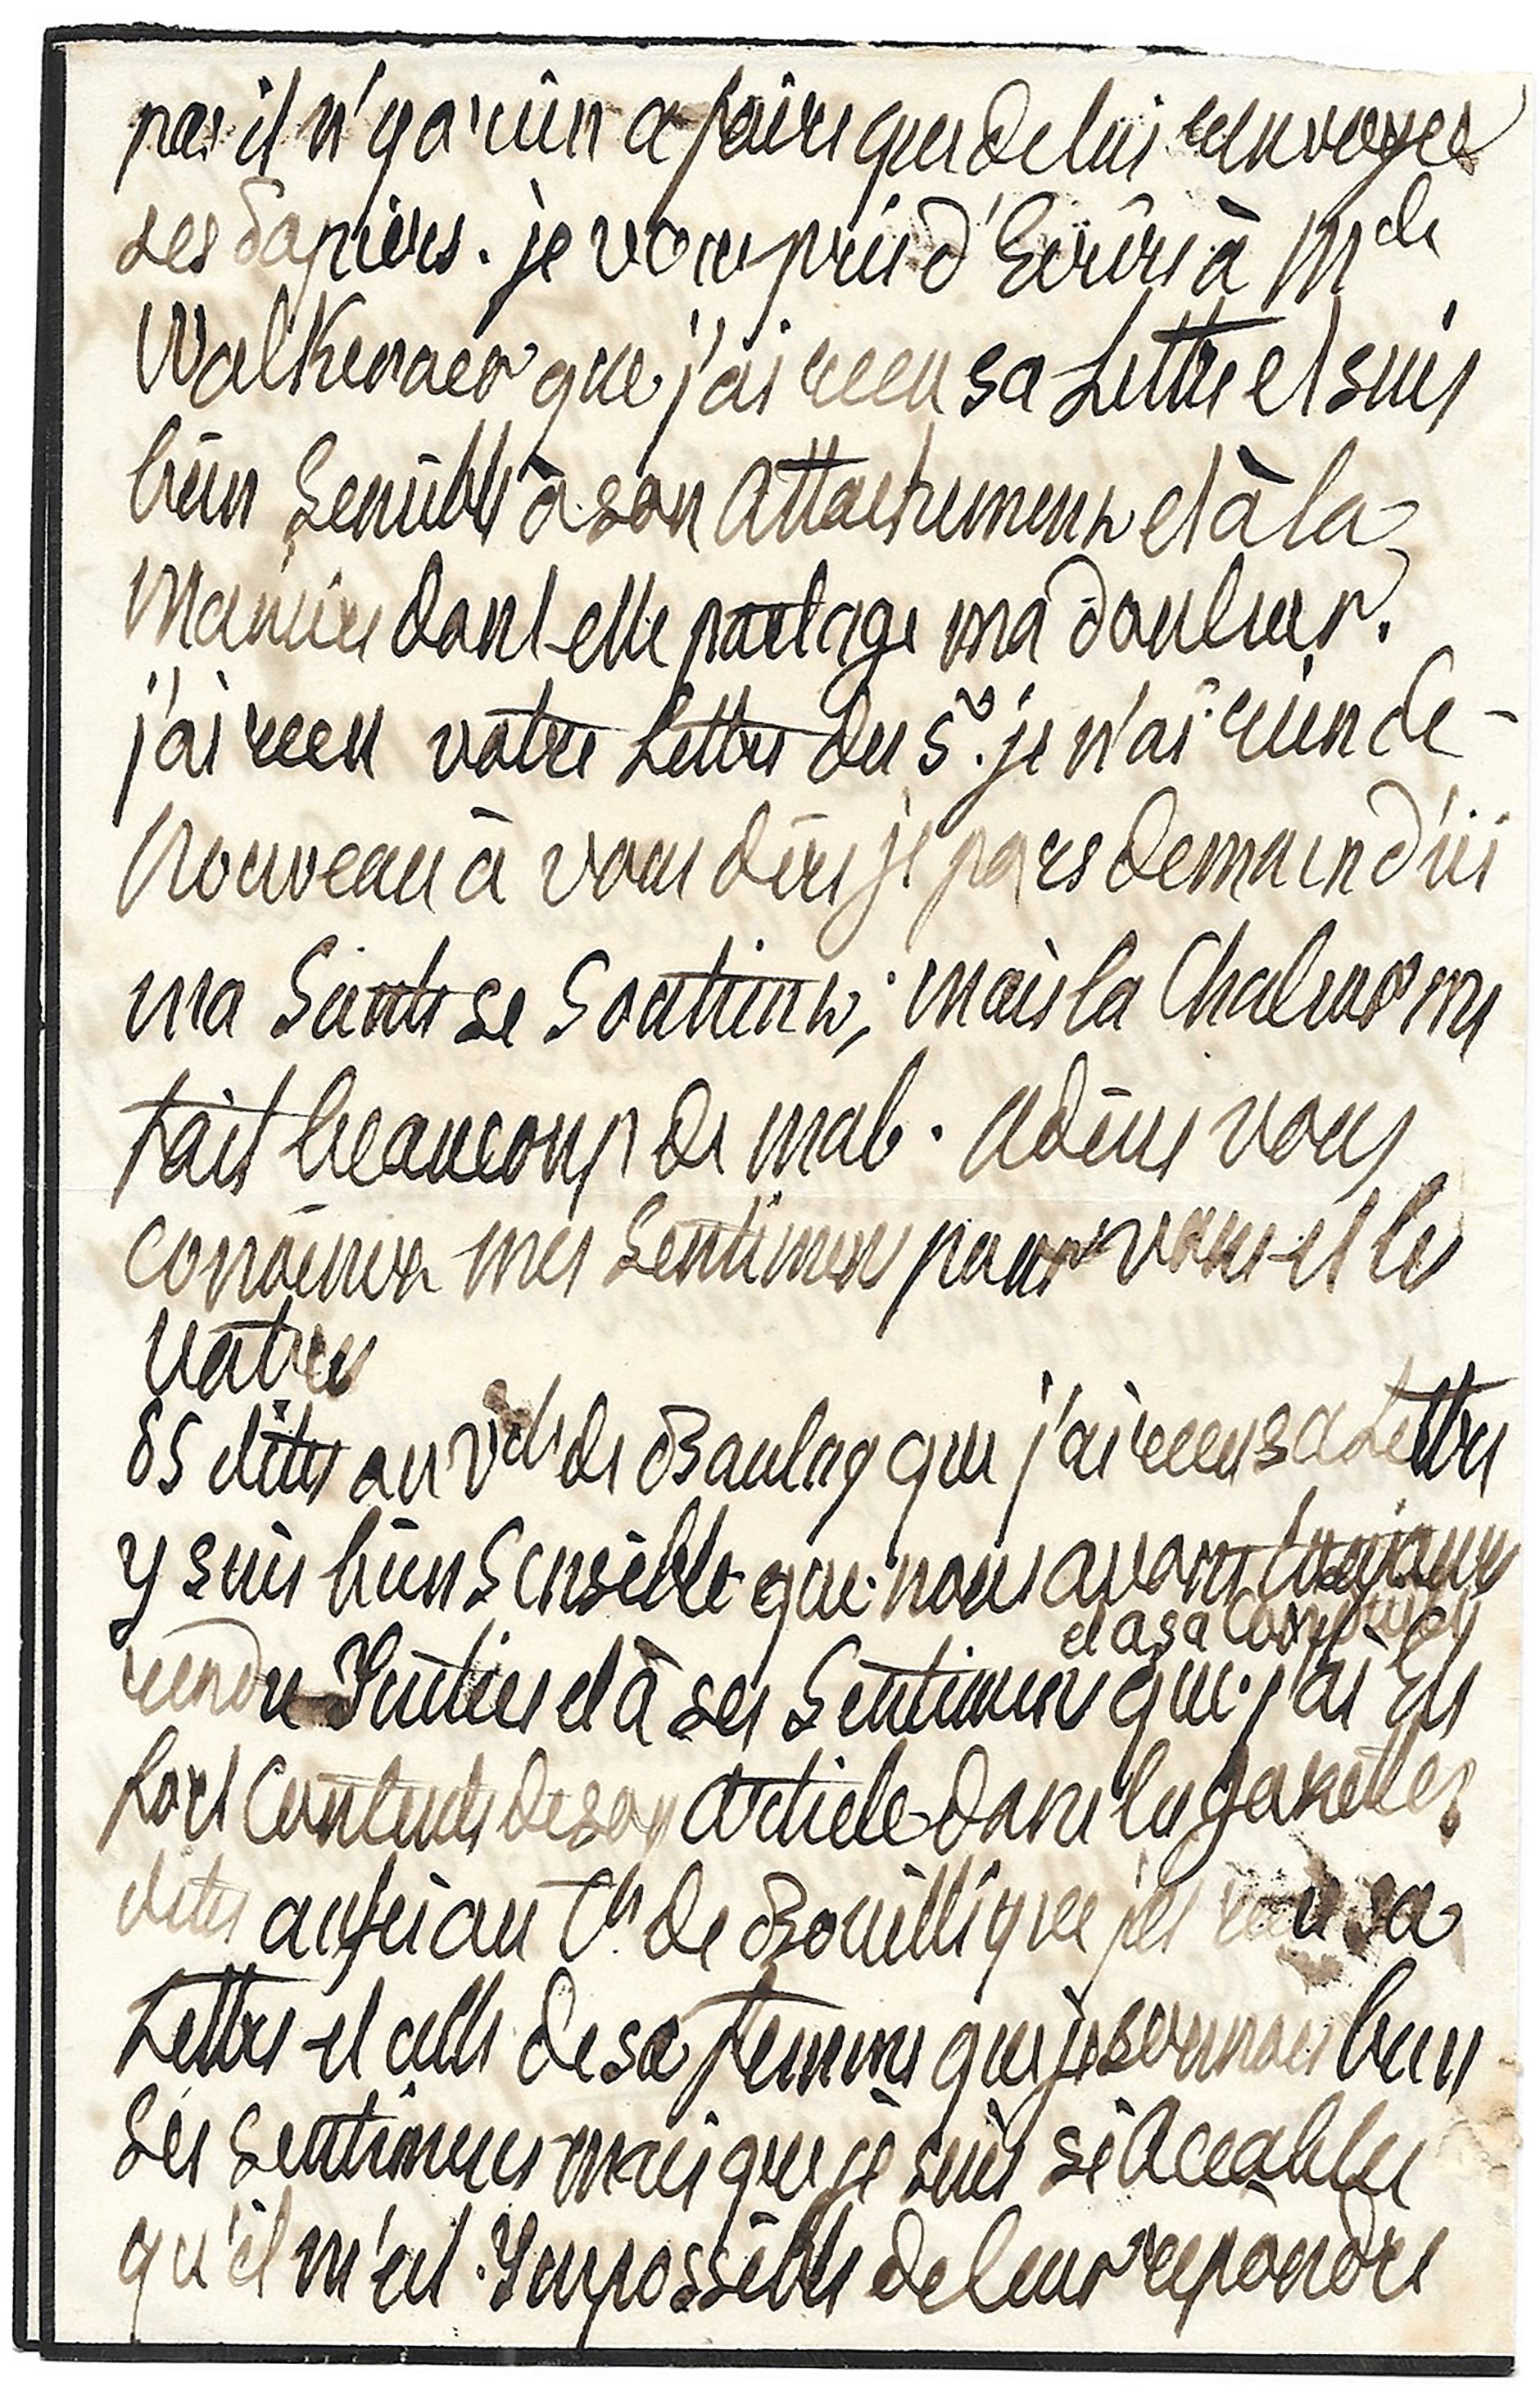 pas il n'y a rien a faire que de lui renvoyer
ses Papiers. je vous prie d'Ecrire à Mde
Walkenaer que j'ai recu sa Lettre et suis
bien Sensible à son Attachement et à la
Maniere dont elle partage ma douleur.
j'ai recu votre Lettre du 5. je n'ai rien de -
Nouveau à vous dire je pars demain d'ici
ma Santé se Soutient, mais la Chaleur me
fait beaucoup de mal. adieu vous
connaisses mes Sentimens pour vous et les
votres
PS dites au Vte de Baulny que j'ai recu sa Lettre
y suis bien Sensible que nous avons toujours
et a sa Conduite
rendu Justice et à ses Sentimens que j'ai Eté
fort Contente de son article dans les gazettes
dites aussi au Ch. de Bouilli que j'ai recu sa
Lettre et celle de sa femme que je connais bien
Ses Sentimens mais que je suis si Accablee
qu'il m'est Impossible de leur repondre